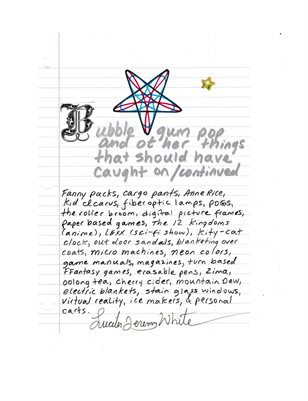 Bubble gum pop
and other things
that should have
caught on/continued
Fanny packs, cargo pants, Anne Rice,
Kid Icarus, fiber optic lamps, POGs,
the roller broom, digital picture frames,
paper based games, The 12 Kingdoms
(anime), Lexx (sci-fi show), kity-cat
clock, out door sandals, blanketing over
coats, micro machines, neon colors,
game manuals, magazines, turn based
FFantasy games, erasable pens, Zima,
oolong tea, cherry cider, mountain Dew,
electric blankets, stain glass windows,
virtual reality, ice makers, & personal
carts.
Jeremy White